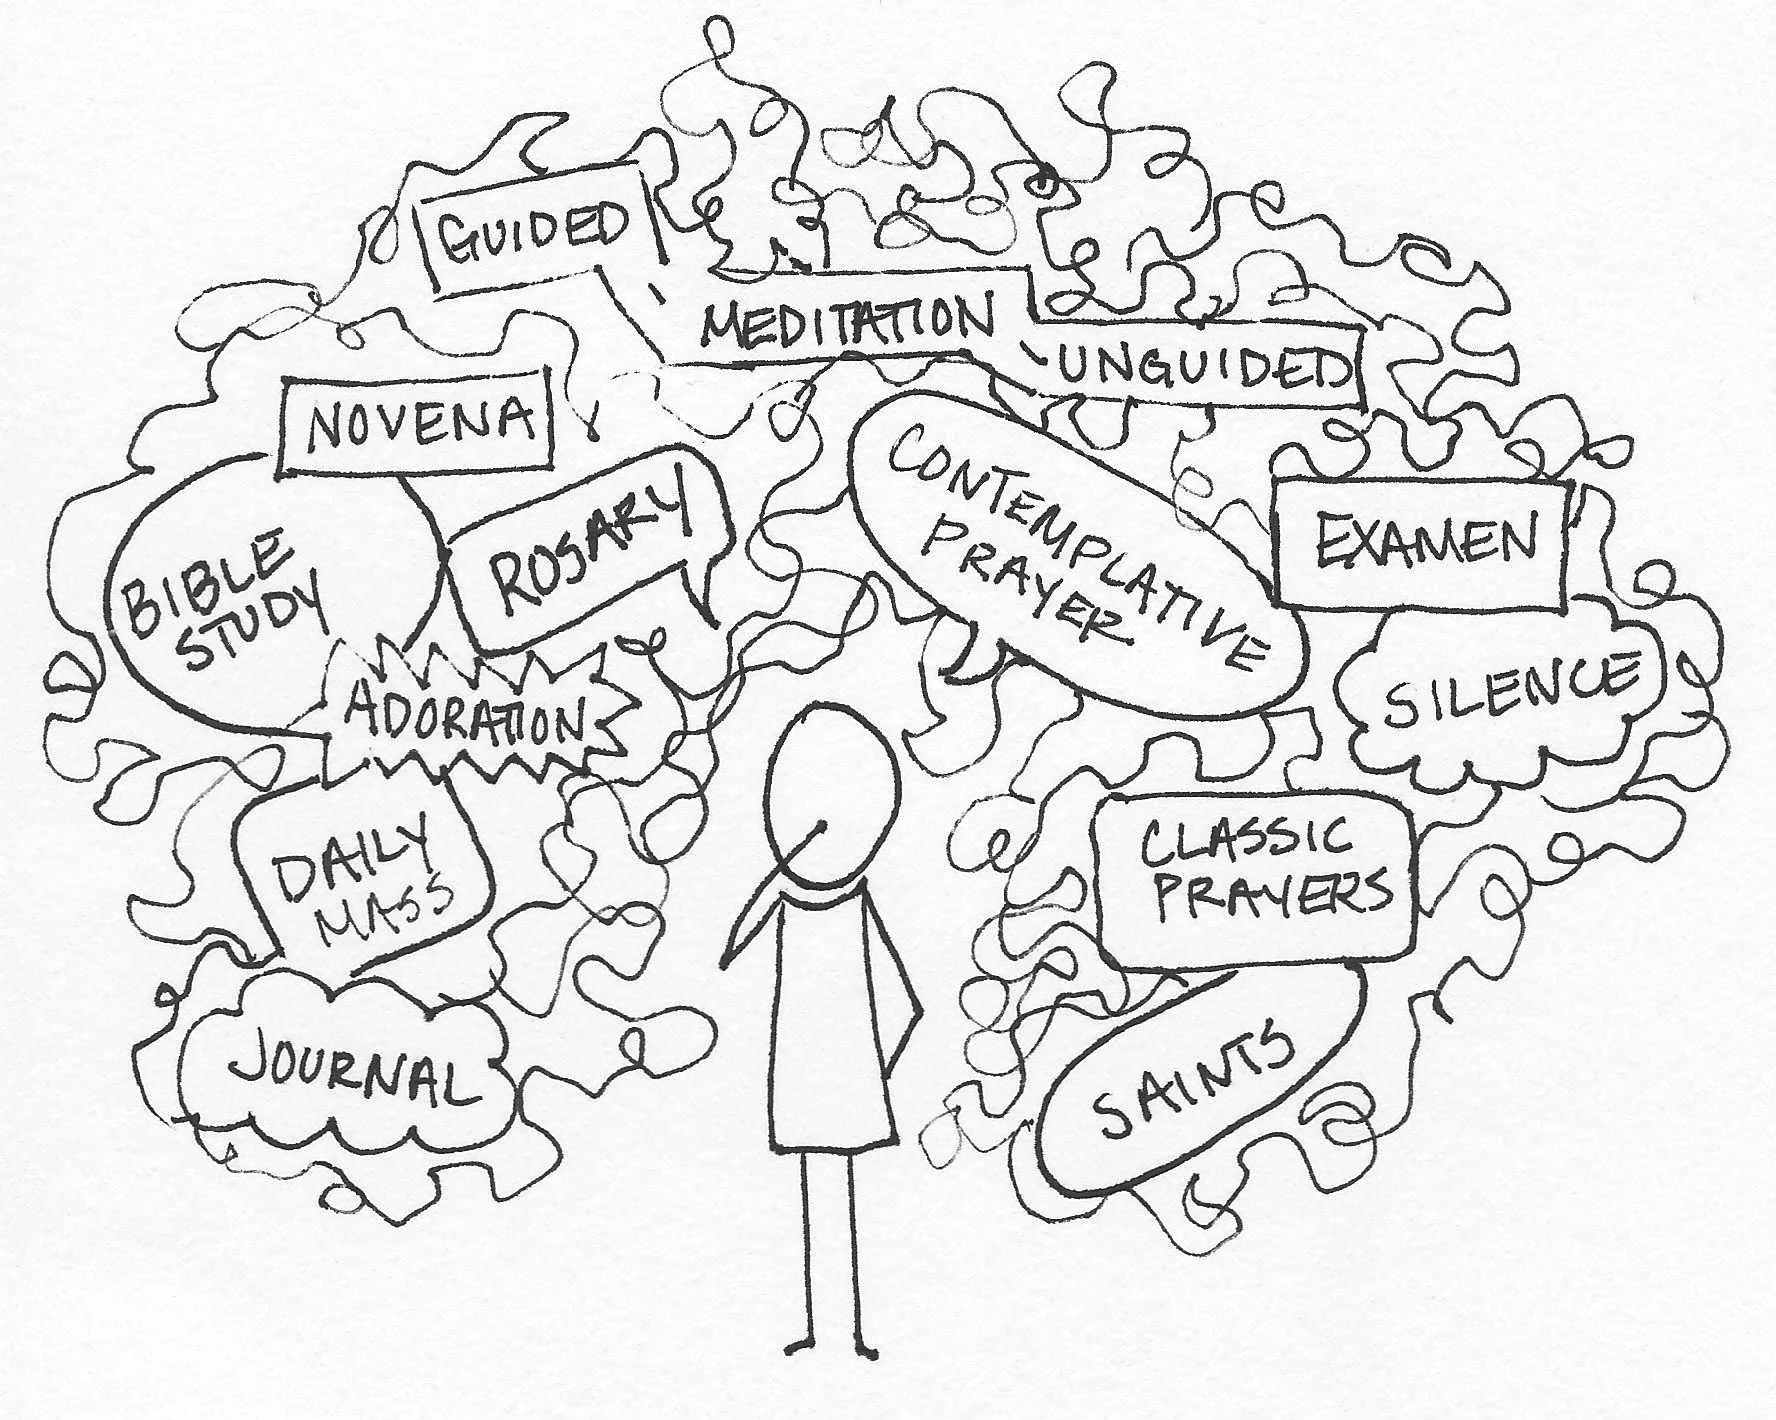 GUIDED
MEDITATION
UNGUIDED
NOVENA
ROSARY
CONTEMPLATIVE
PRAYER
EXAMEN
BIBLE
STUDY
ADORATION
SILENCE
DAILY
MASS
CLASSIC
PRAYERS
JOURNAL
SAINTS